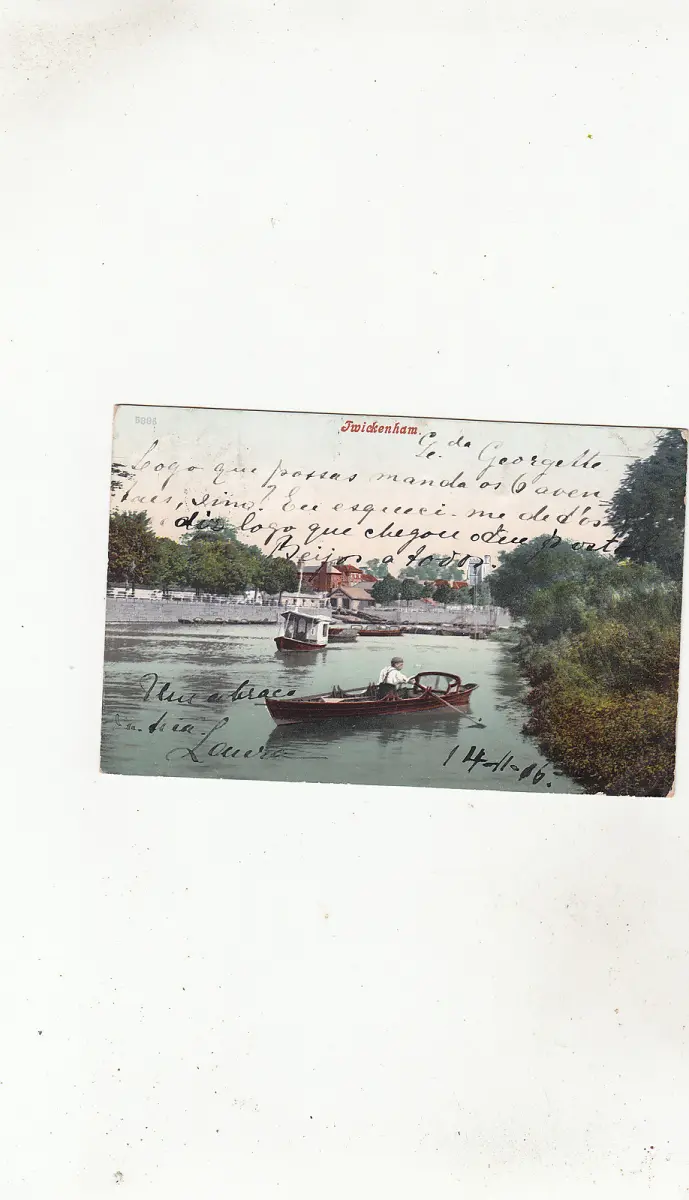 5304
Twickenham.
Georgette
Logo que possas manda os 6 aven-
taes, sim? Eu esqueci-me de t'os
dir logo que chegou o teu
Beijos a todos.
Um abraço
da tia
Laura
14-11-